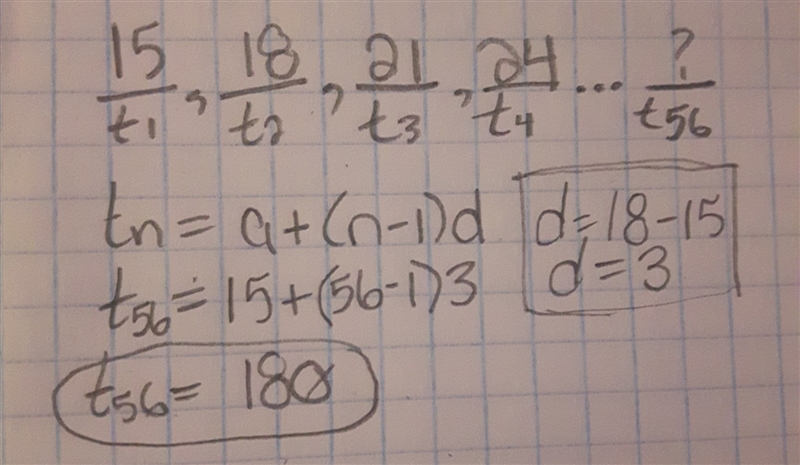 15/t1, 18/t2, 21/t3, 24/t4 ... ?/t56
tn = a+(n-1)d
d=18-15
d=3
t56 = 15+(56-1)3
t56 = 180